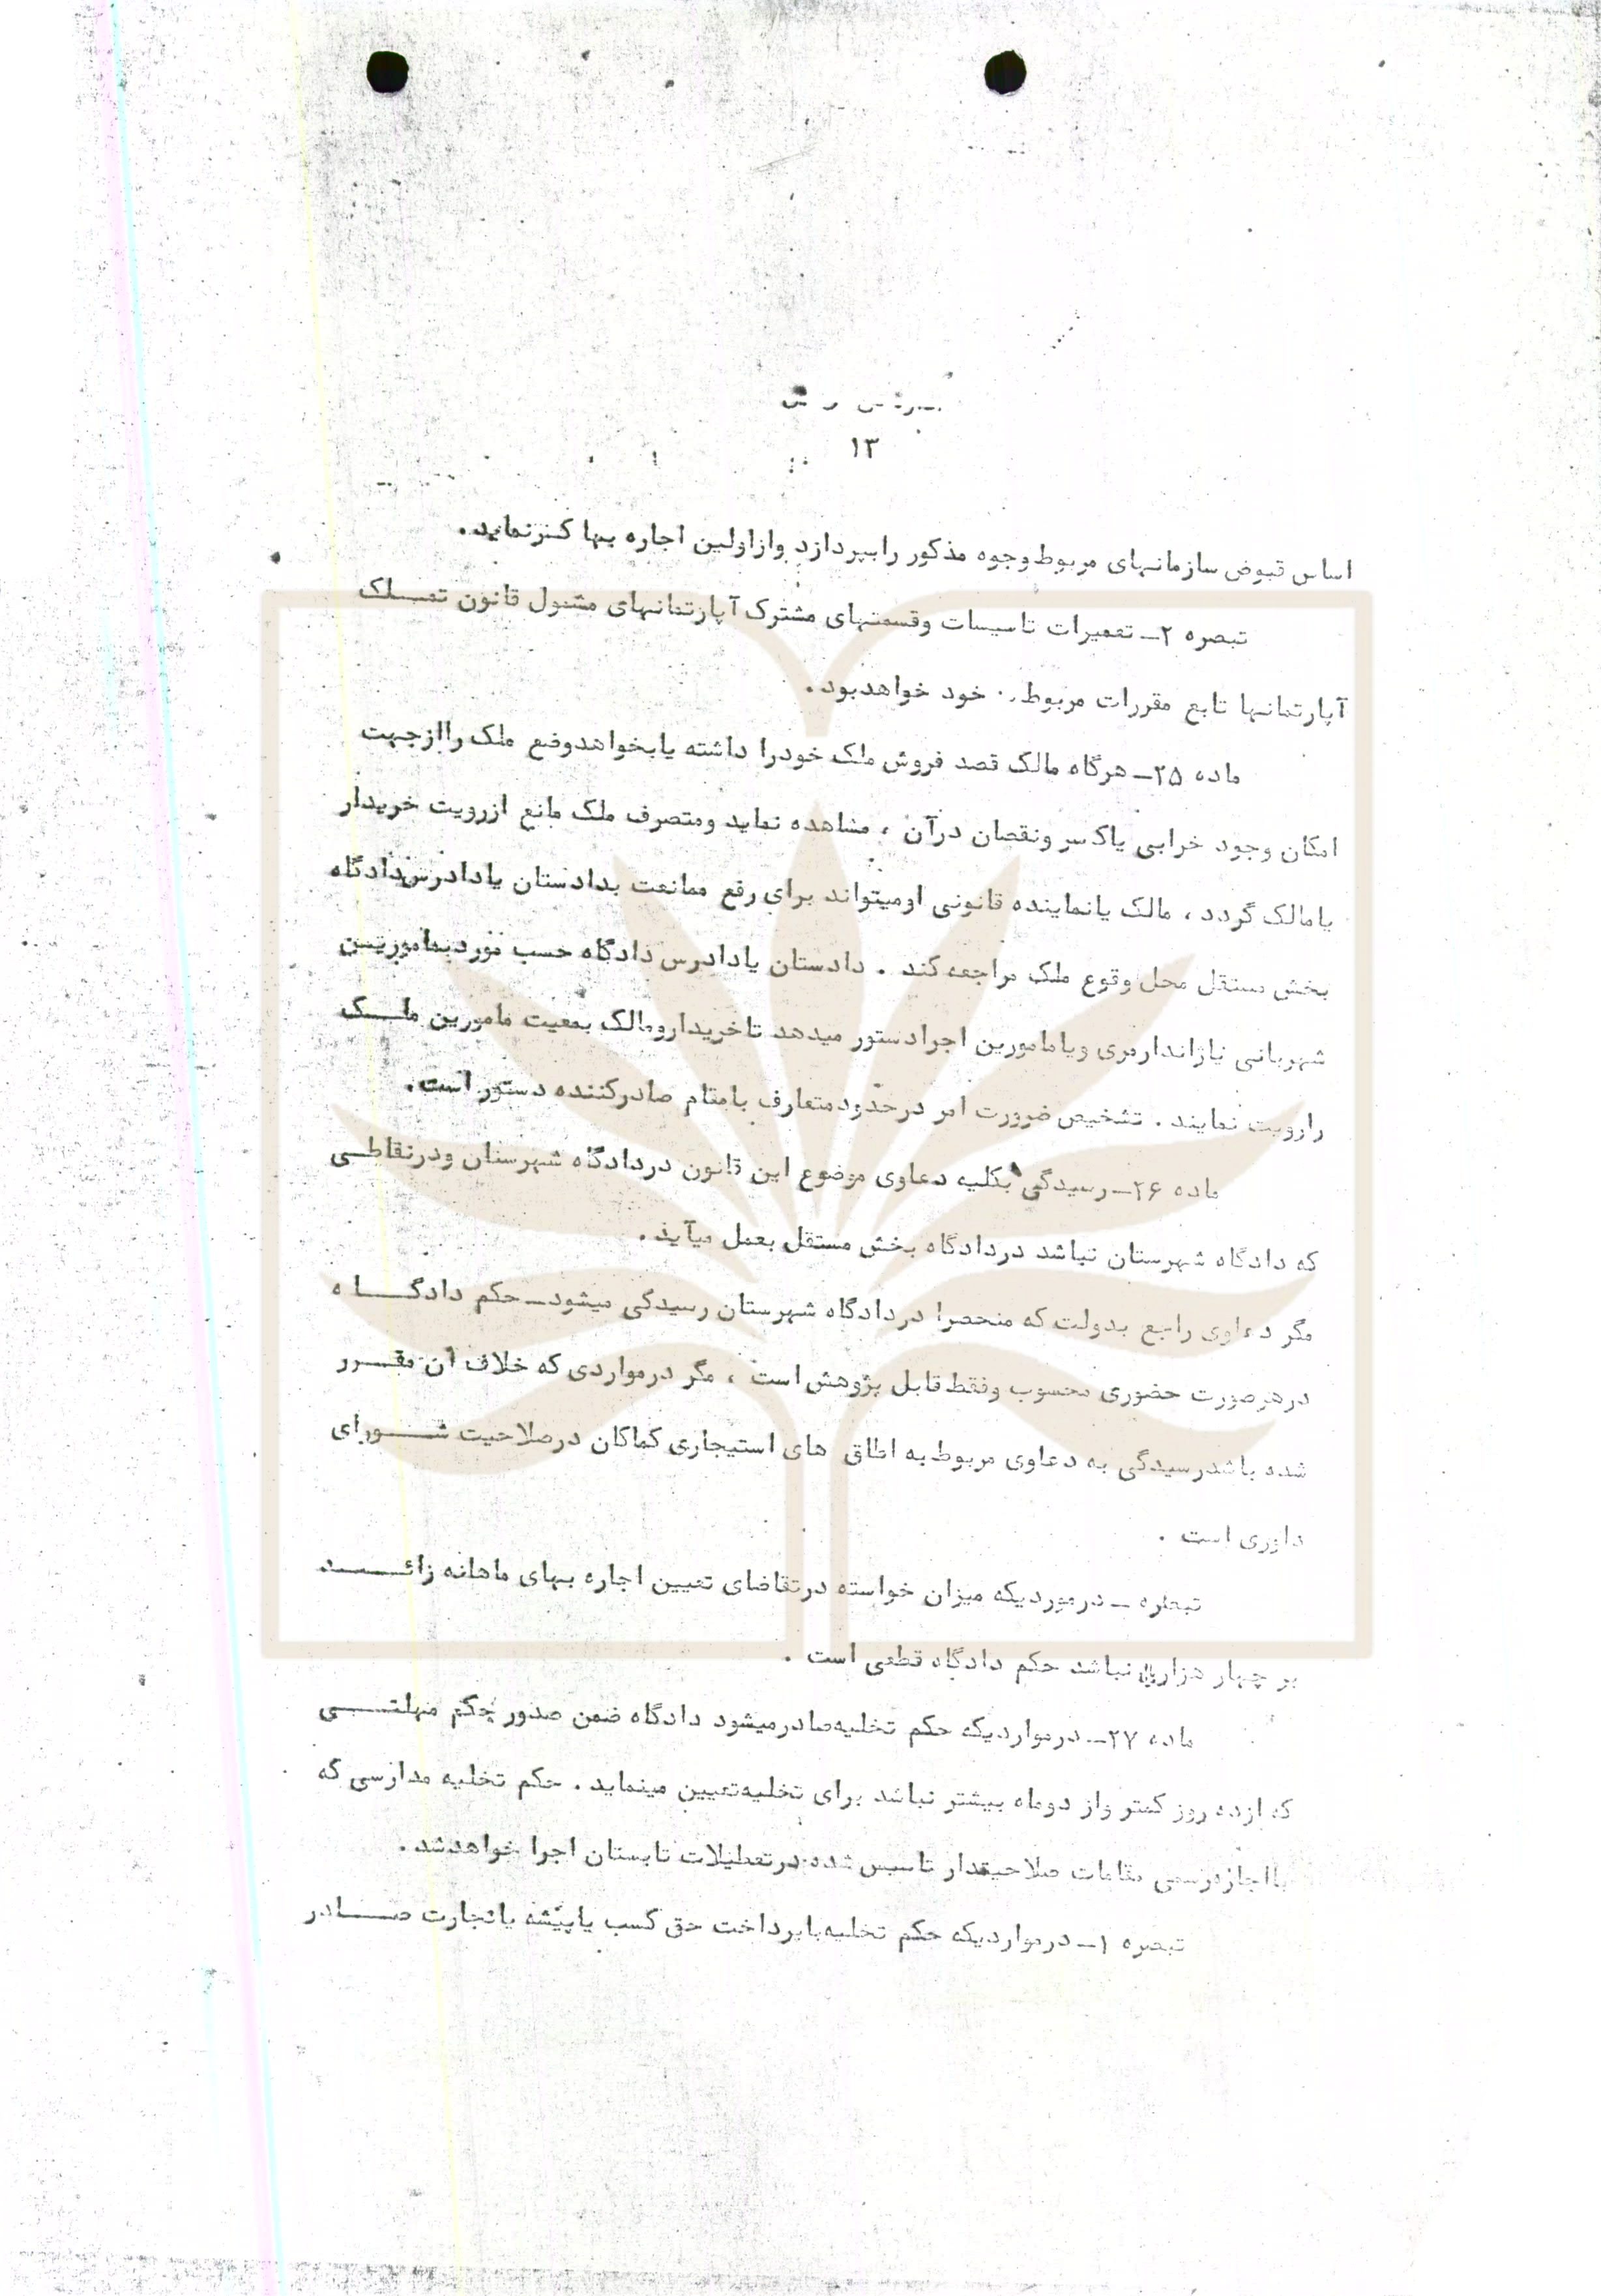 ۱۳
اساس قبوض سازمانهای مربوط وجوه مذکور رابپردازد وازاولین اجاره بها کسرنماید.
تبصره ۲ـ تعمیرات تاسیسات وقسمتهای مشترک آپارتمانهای مشمول قانون تملک
آپارتمانها تابع مقررات مربوط خود خواهدبود.
ماده ۲۵ـ هرگاه مالک قصد فروش ملک خودرا داشته یابخواهدوضع ملک راازجهت
امکان وجود خرابی یاکسر ونقصان درآن ، مشاهده نماید ومتصرف ملک مانع ازرویت خریدار
یامالک گردد ، مالک یانماینده قانونی اومیتواند برای رفع ممانعت بدادستان یادادرس دادگاه
بخش مستقل محل وقوع ملک مراجعه کند . دادستان یادادرس دادگاه حسب مورد بمامورین
شهربانی یاژاندارمری ویامامورین اجرادستور میدهد تاخریدارومالک بمعیت مامورین ملک
رارویت نمایند . تشخیص ضرورت امر درحدودمتعارف بامقام صادرکننده دستور است.
ماده ۲۶ـ رسیدگی بکلیه دعاوی موضوع این قانون دردادگاه شهرستان ودرنقاطی
که دادگاه شهرستان نباشد دردادگاه بخش مستقل بعمل میآید.
مگر دعاوی راجع بدولت که منحصرا دردادگاه شهرستان رسیدگی میشود ـ حکم دادگاه
درهرصورت حضوری محسوب وفقط قابل پژوهش است ، مگر درمواردی که خلاف آن مقرر
شده باشدرسیدگی به دعاوی مربوط به اطاق های استیجاری کماکان درصلاحیت شورای
داوری است .
تبصره ـ درموردیکه میزان خواسته درتقاضای تعیین اجاره بهای ماهانه زائد
بر چهار هزارریال نباشد حکم دادگاه قطعی است .
ماده ۲۷ـ درمواردیکه حکم تخلیه صادرمیشود دادگاه ضمن صدور حکم مهلتی
که ازده روز کمتر واز دوماه بیشتر نباشد برای تخلیه تعیین مینماید . حکم تخلیه مدارسی که
بااجازه رسمی مقامات صلاحیتدار تاسیس شده درتعطیلات تابستان اجرا خواهدشد.
تبصره ۱ـ درمواردیکه حکم تخلیه باپرداخت حق کسب یاپیشه یاتجارت صادر